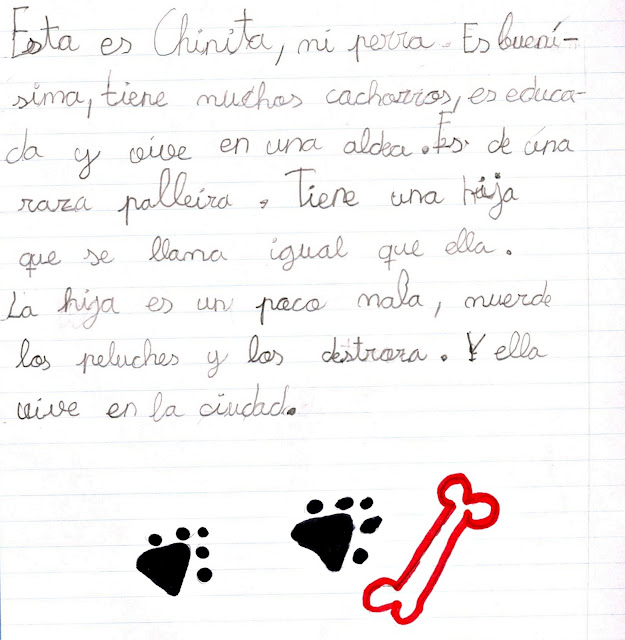 Esta es Chinita, mi perra. Es buení-
sima, tiene muchos cachorros, es educa-
da y vive en una aldea. Es de una
raza palleira. Tiene una hija
que se llama igual que ella.
La hija es un poco mala, muerde
los peluches y los destroza. Y ella
vive en la ciudad.